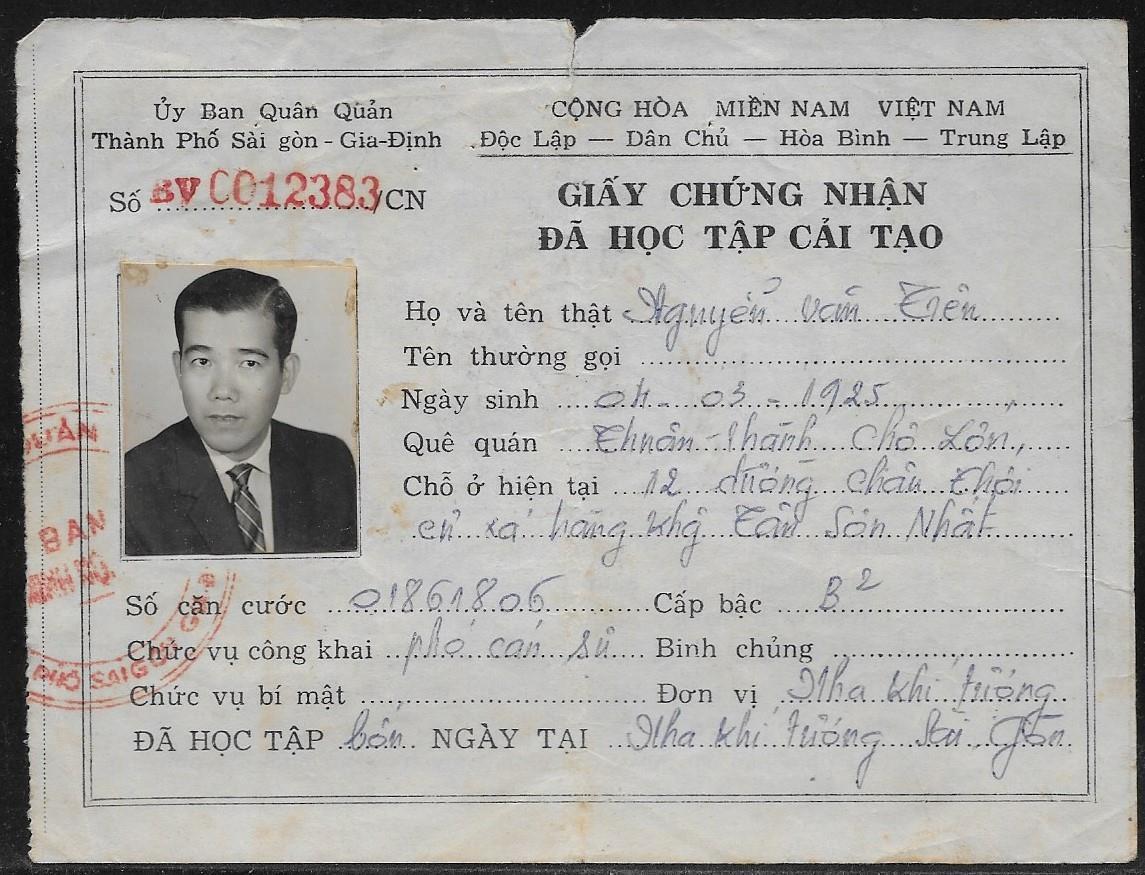 Ủy Ban Quân Quản
Thành Phố Sài gòn - Gia-Định
CỘNG HÒA MIỀN NAM VIỆT NAM
Độc Lập — Dân Chủ — Hòa Bình — Trung Lập
Số BV C012383/CN
GIẤY CHỨNG NHẬN
ĐÃ HỌC TẬP CẢI TẠO
Họ và tên thật Nguyễn văn Tiên
Tên thường gọi
Ngày sinh 04 - 03 - 1925
Quê quán Thuân-thành Chợ Lớn,
Chỗ ở hiện tại 12 đường Châu Thới
cư xá hàng không Tân Sơn Nhất
Số căn cước 01861806 Cấp bậc B2
Chức vụ công khai phó cán sự Binh chủng
Chức vụ bí mật Đơn vị Nha khí tượng
ĐÃ HỌC TẬP bốn NGÀY TẠI Nha khí tượng Sài Gòn
QUẢN
BAN
PHỐ SAIGON G